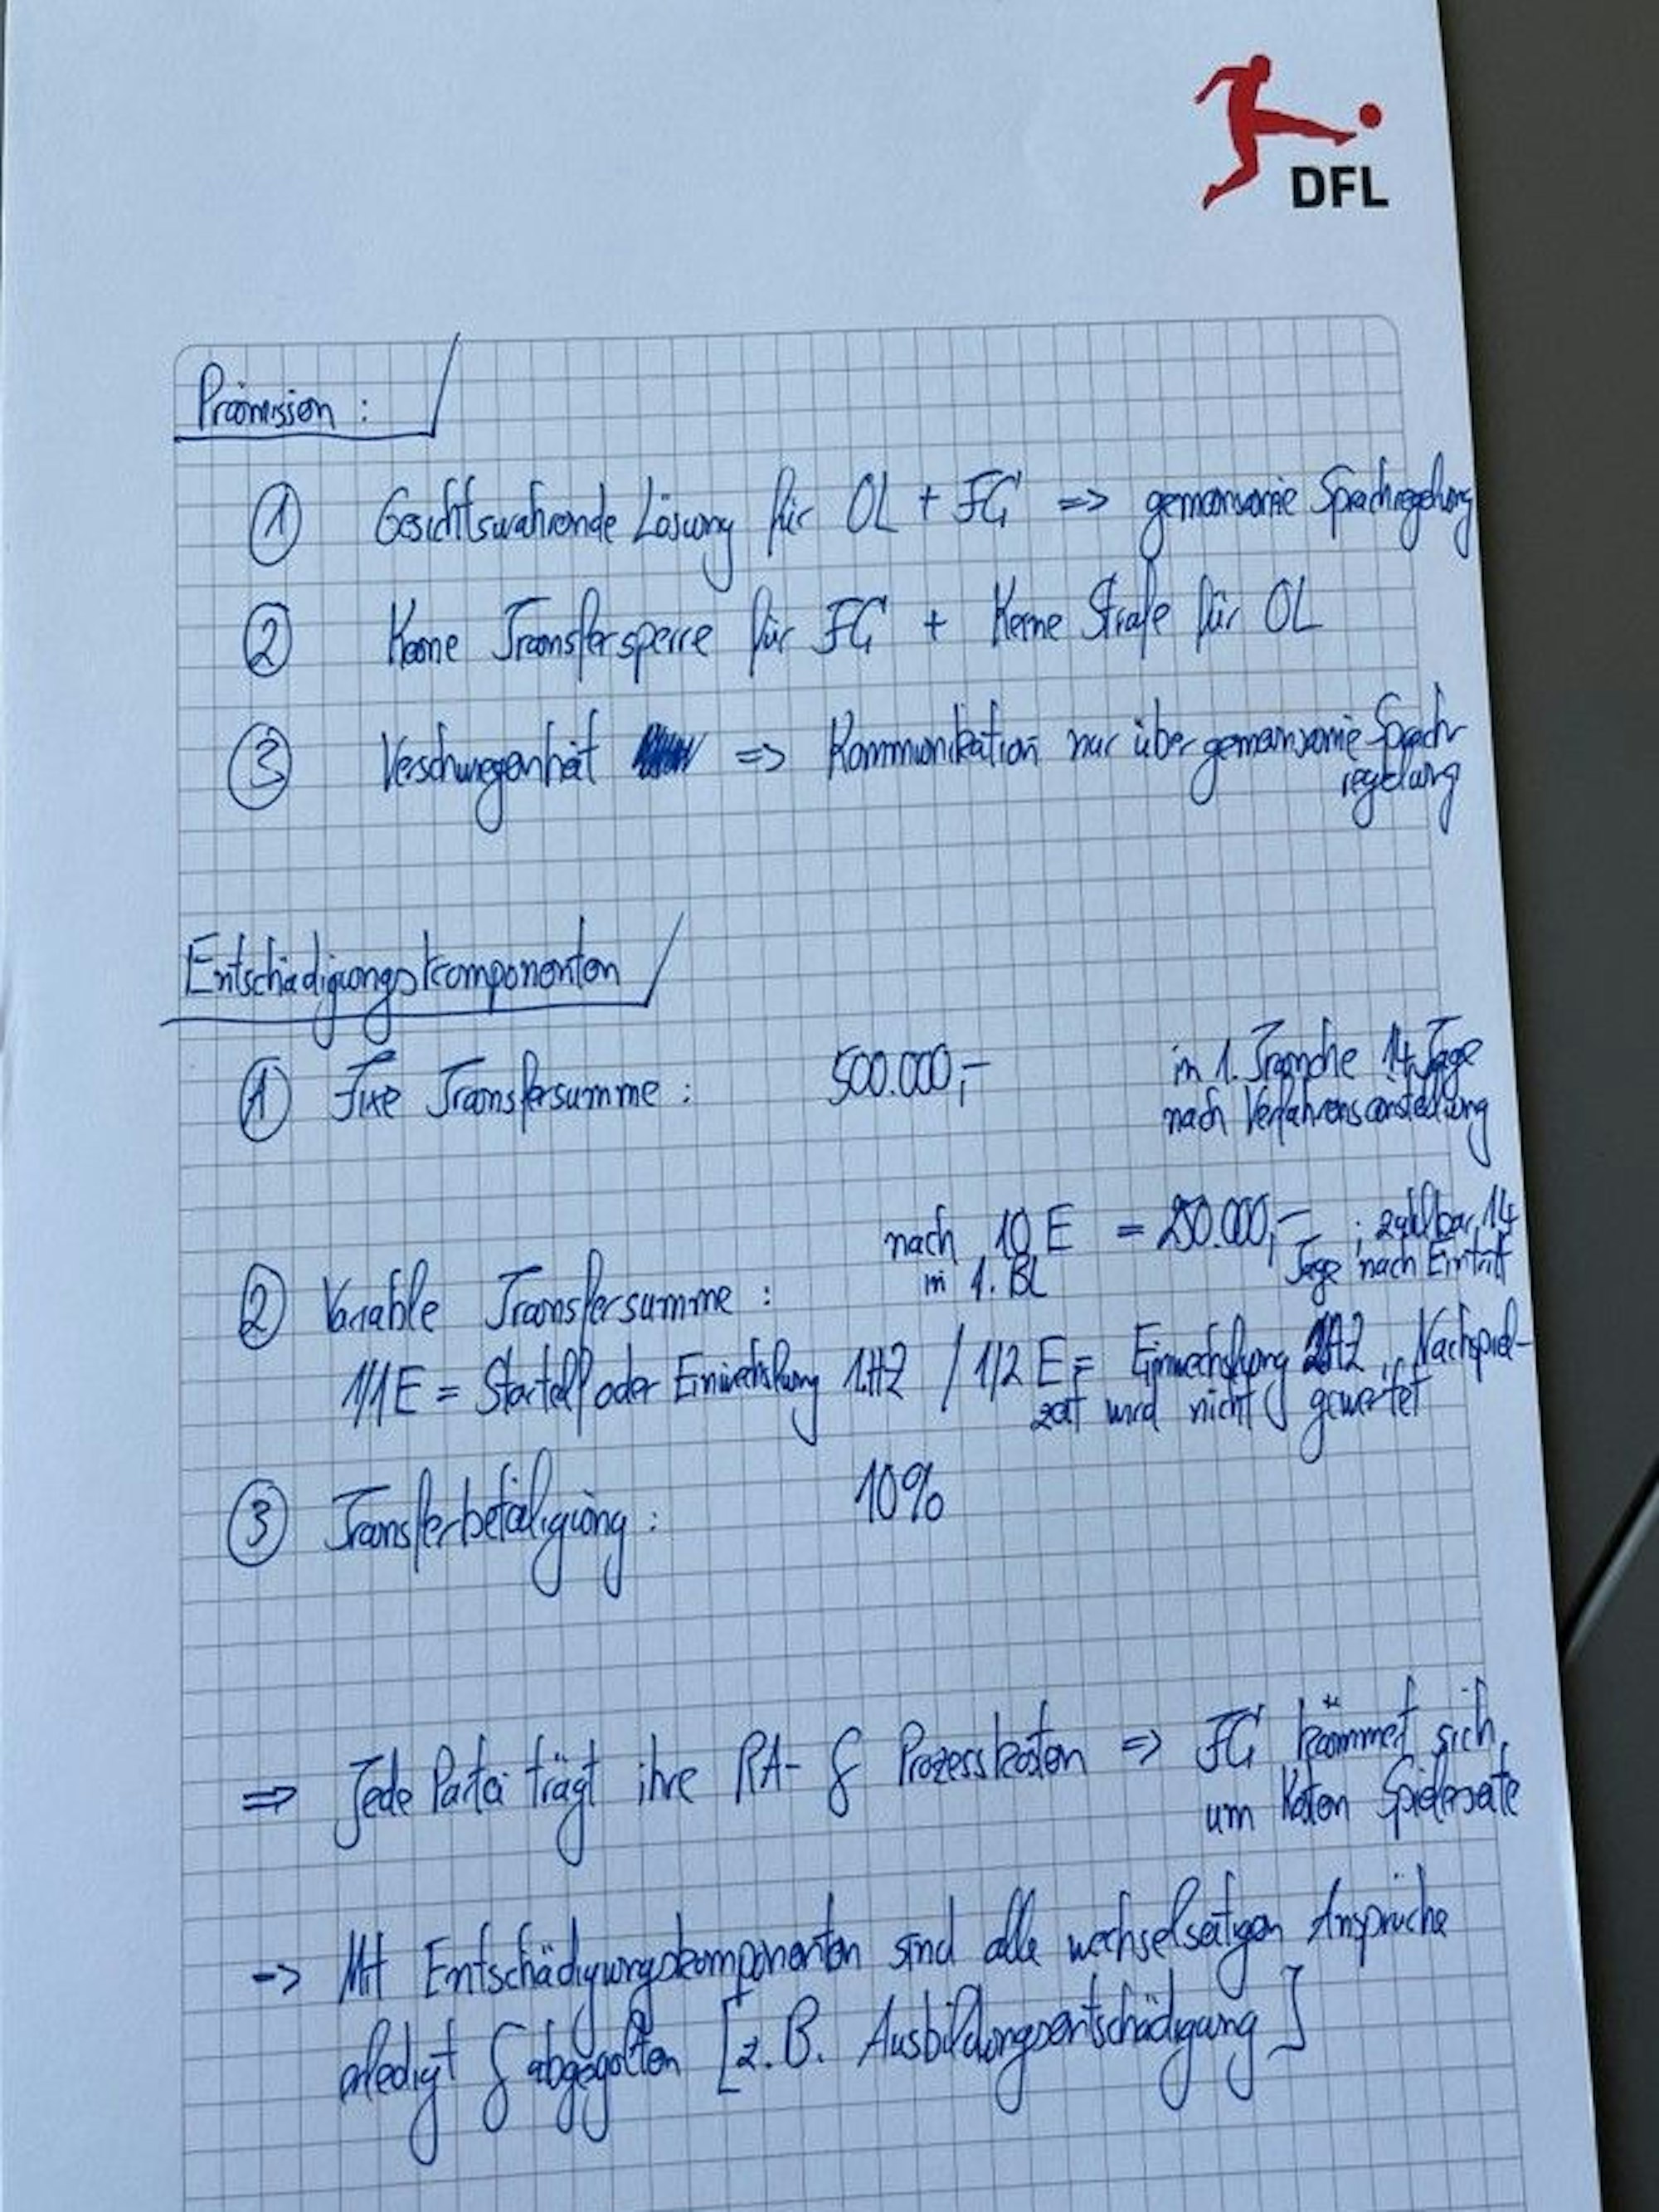 DFL
Prämissen :
① Gesichtswahrende Lösung für OL + FC => gemeinsame Sprachregelung
② Keine Transfersperre für FC + Keine Strafe für OL
③ Verschwiegenheit => Kommunikation nur über gemeinsame Sprach-
regelung
Entschädigungskomponenten
① Fixe Transfersumme : 500.000,- in 1. Tranche 14 Tage
nach Verfahrenseinstellung
nach 10 E = 250.000,- ; zahlbar 14
in 1. BL Tage nach Eintritt
② Variable Transfersumme :
1/1 E = Startelf oder Einwechslung 1.HZ / 1/2 E = Einwechslung 2.HZ, Nachspiel-
zeit wird nicht gewertet
③ Transferbeteiligung : 10%
=> Jede Partei trägt ihre RA- & Prozesskosten => FC kümmert sich
um Kosten Spielerseite
-> Mit Entschädigungskomponenten sind alle wechselseitigen Ansprüche
erledigt & abgegolten [z.B. Ausbildungsentschädigung]